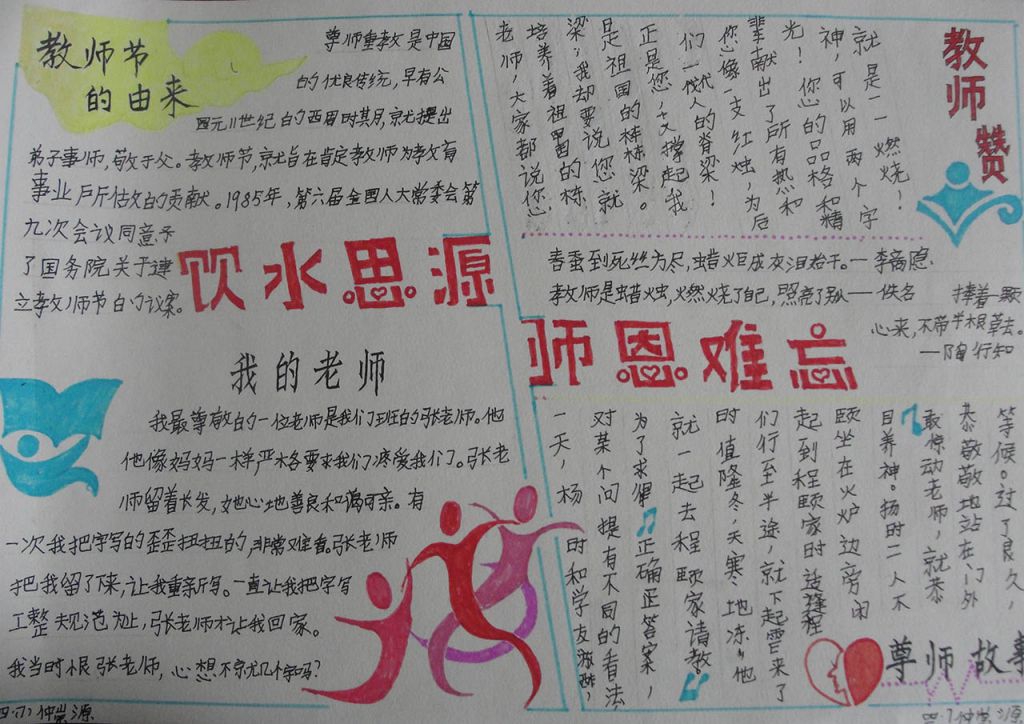 教师节
的由来
尊师重教是中国
的优良传统,早有公
四元11世纪的西周时其月,就提出
弟子事师,敬于父。教师节,就旨在肯定教师为教育
事业所估攵的贡献。1985年,第六届全国人大常委会第
九次会议同意
了国务院关于建
立教师节的议案。
饮水思源
我的老师
我最尊敬的一位老师是我们班的张老师。他
他像妈妈一样,严格要求我们疼爱我们。张老
师留着长发,她心地善良和谒可亲。有
一次我把字写的歪歪扭扭的,非常难看。张老师
把我留了下来,让我重新写。一直让我把字写
工整规范为止,张老师才让我回家。
我当时恨张老师,心想不就几个字吗?
四·(7)仲崇源
教师赞
老师,大家都说您
培养着祖国的栋
梁;我却要说您就
是祖国的栋梁。
正是您,支撑起我
们一代人的脊梁!
您像一支红烛,为后
辈献出了所有热和
光!你您的品格和精
神,可以用两个字
就是——燃烧!
春蚕到死丝方尽,蜡炬成灰泪始干。—李商隐
教师是蜡烛,燃烧了自己,照亮了别人——佚名
捧着一颗
心来,不带半根草去。
—陶行知
师恩难忘
一天,杨时和学友
对某个问提有不同的看法
为了求得正确正答案,
就一起去程颐家请教
时值隆冬,天寒地冻,他
们行至半途,就下起雪来了
起到程颐家时
颐坐在火炉边旁闭
目养神。扬时二人不
敢惊动老师,就恭
恭敬敬地站在门外
等候。过了良久,
尊师故事
四·7仲崇源